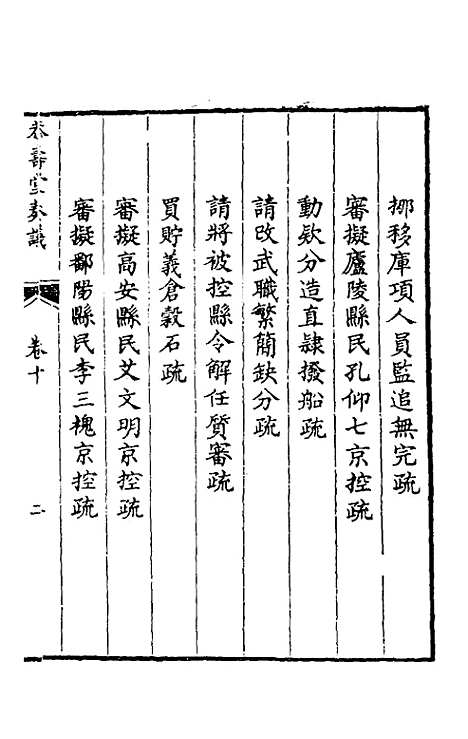 挪移庫項人員監追無完疏
審擬廬陵縣民孔仰七京控疏
動欵分造直隸撥船疏
請改武職繁簡缺分疏
請將被控縣令解任質審疏
買貯義倉穀石疏
審擬高安縣民艾文明京控疏
審擬鄱陽縣民李三槐京控疏
壽堂奏議
卷十
二